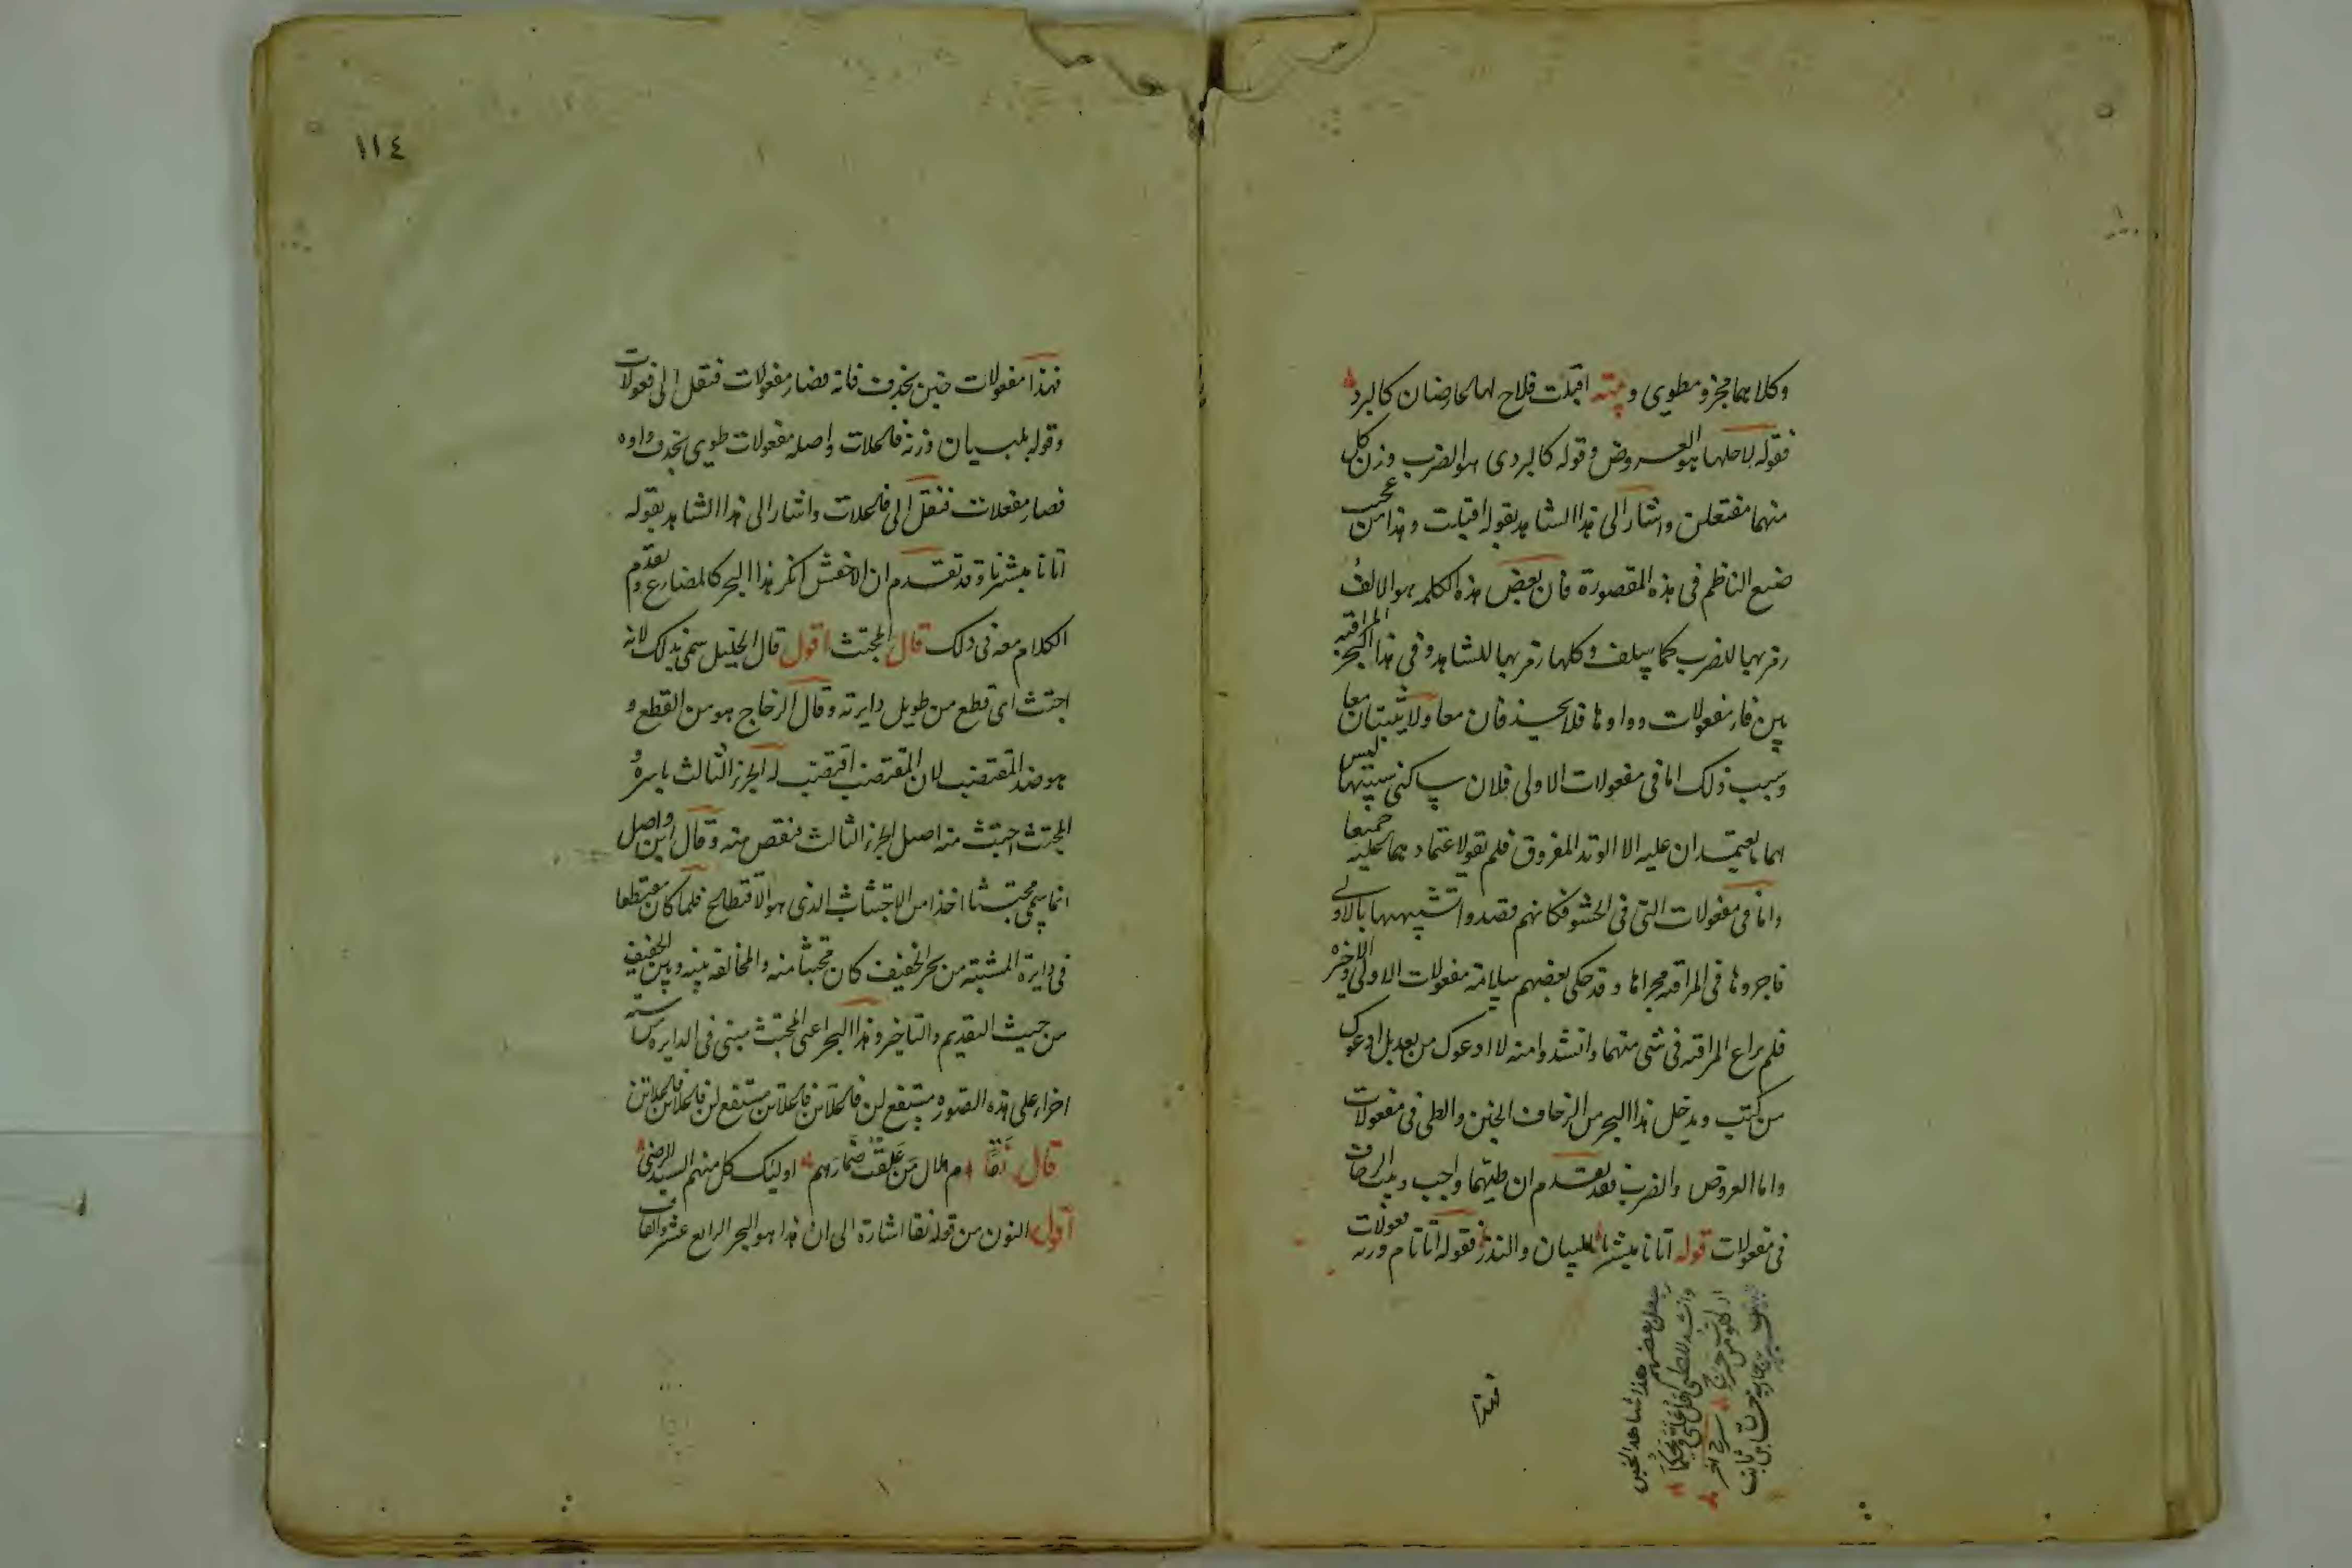 وكلاهما مجزو مطوي وبيته اقبلت فلاح لها عارضان كالبرد
فقوله لاح لها هو العروض وقوله كالبردي هو الضرب وزن كل
منهما مفتعلن واشار الى هذا الشاهد بقوله اقبلت وهذا من عجب
صنع الناظم في هذه المقصورة فان بعض هذه الكلمه هو الالف
رمز بها للضرب كما سلف وكلها رمز بها للشاهد وفي هذا البحر المراقبه
بين فاء مفعولات وواوها فلا يحذفان معا ولا يثبتان معا
وسبب ذلك اما في مفعولات الاولى فلان ساكني سببيها ليس
لهما ما يعتمدان عليه الا الوتد المفروق فلم يقو لاعتمادهما عليه جميعا
واما في مفعولات التي في الحشو فكانهم قصدوا تشبيهها بالاولى
فاجروها في المراقبه مجراها وقد حكى بعضهم سلامة مفعولات الاولى والاخيره
فلم يراع المراقبه في شي منهما وانشدوا منه لا ادعوك من بعد بل ادعوك
من كثب ويدخل هذا البحر من الزحاف الخبن والطي في مفعولات
واما العروض والضرب فقد تقدم ان طيهما واجب وبيت الزحاف
في مفعولات قوله اتانا مبشرنا بالبيان والنذر فقوله اتانا م وزنه مفولات
جعل بعضهم هذا شاهد الخبن
وانشد للطي
فهذا
١١٤
فهذا مفعولات خبن بحذف فائه فصار مفولات فنقل الى فعولات
وقوله بلبيان وزنه فاعلات واصله مفعولات طوي بحذف واوه
فصار مفعلات فنقل الى فاعلات واشار الى هذا الشاهد بقوله
اتانا مبشرنا وقد تقدم ان الاخفش انكر هذا البحر كالمضارع وتقدم
الكلام معه في ذلك قال المجتث اقول قال الخليل سمي بذلك لانه
اجتث اي قطع من طويل دايرته وقال الزجاج هو من القطع و
هو ضد المقتضب لان المقتضب اقتضب له الجزء الثالث باسره و
المجتث اجتث منه اصل الجزء الثالث فنقص منه وقال ابن واصل
انما سمي مجتثا اخذا من الاجتثاث الذي هو الاقتطاع فلما كان مقتطعا
في دايرة المشتبه من بحر الخفيف كان مجتثا منه والمخالفة بينه وبين الخفيف
من حيث التقديم والتاخير وهذا البحر اعني المجتث مبني في الدايره من ستة
اجزاء على هذه الصوره مستفع لن فاعلاتن فاعلاتن مستفع لن فاعلاتن فاعلاتن
قال نقا ام هلال من علقت ضمارهم اوليك كل منهم السيد الرضى
اقول النون من قوله نقا اشارة الى ان هذا هو البحر الرابع عشر والقاف